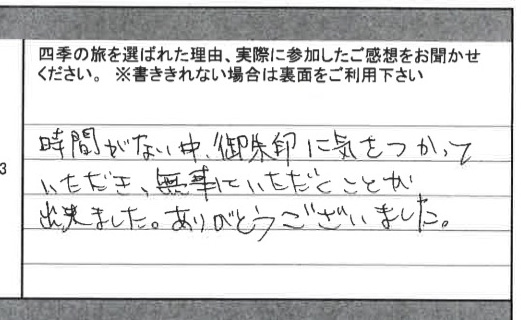 四季の旅を選ばれた理由、実際に参加したご感想をお聞かせ
ください。 ※書ききれない場合は裏面をご利用下さい
3
時間がない中、御朱印に気をつかって
いただき、無事にいただくことが
出来ました。ありがとうございました。